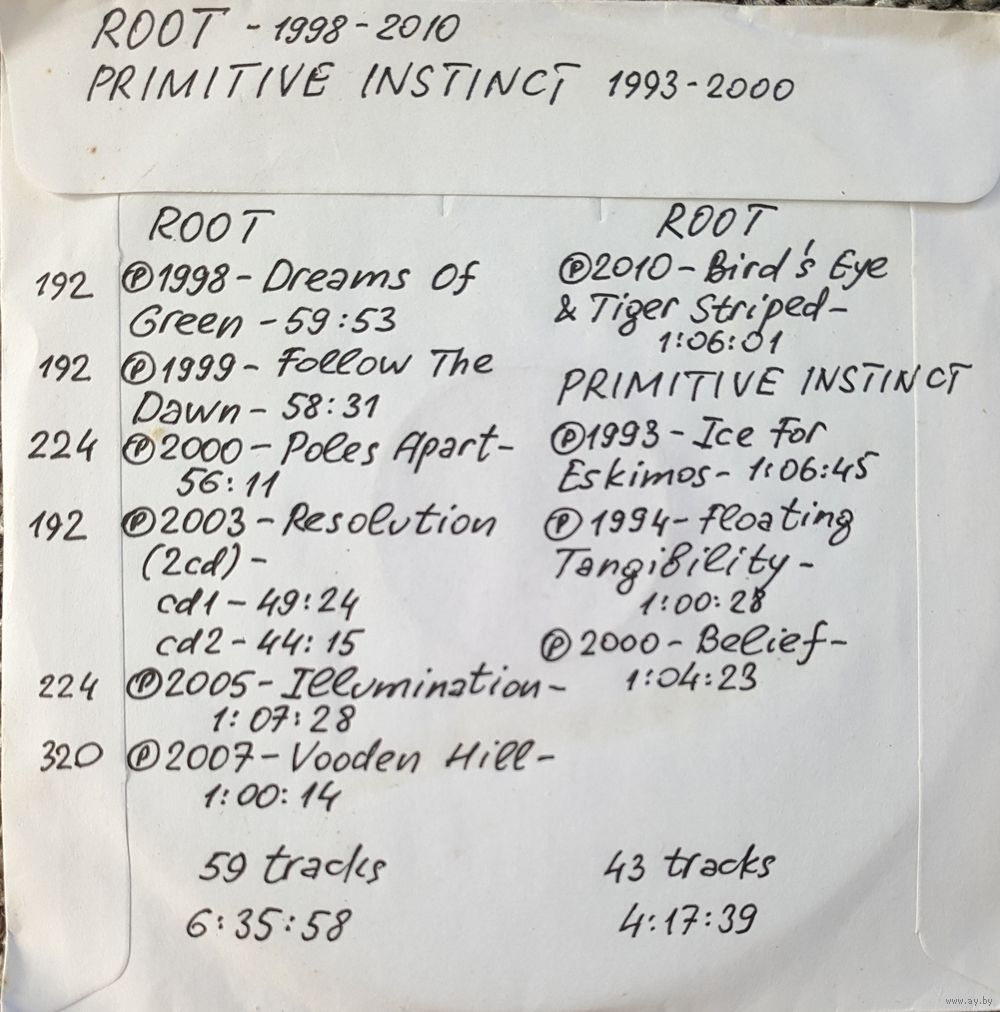 ROOT - 1998-2010
PRIMITIVE INSTINCT 1993-2000
ROOT
192 Ⓟ1998-Dreams Of
Green - 59:53
192 Ⓟ1999-Follow The
Dawn- 58:31
224 Ⓟ2000-Poles Apart-
56:11
192 Ⓟ2003-Resolution
(2cd)-
cd1-49:24
cd2-44:15
224 Ⓟ2005-Illumination-
1:07:28
320 Ⓟ2007-Vooden Hill-
1:00:14
59 tracks
6:35:58
ROOT
Ⓟ2010-Bird's Eye
& Tiger Striped-
1:06:01
PRIMITIVE INSTINCT
Ⓟ1993-Ice For
Eskimos- 1:06:45
Ⓟ1994-Floating
Tangibility-
1:00:28
Ⓟ2000-Belief-
1:04:23
43 tracks
4:17:39
www.ay.by